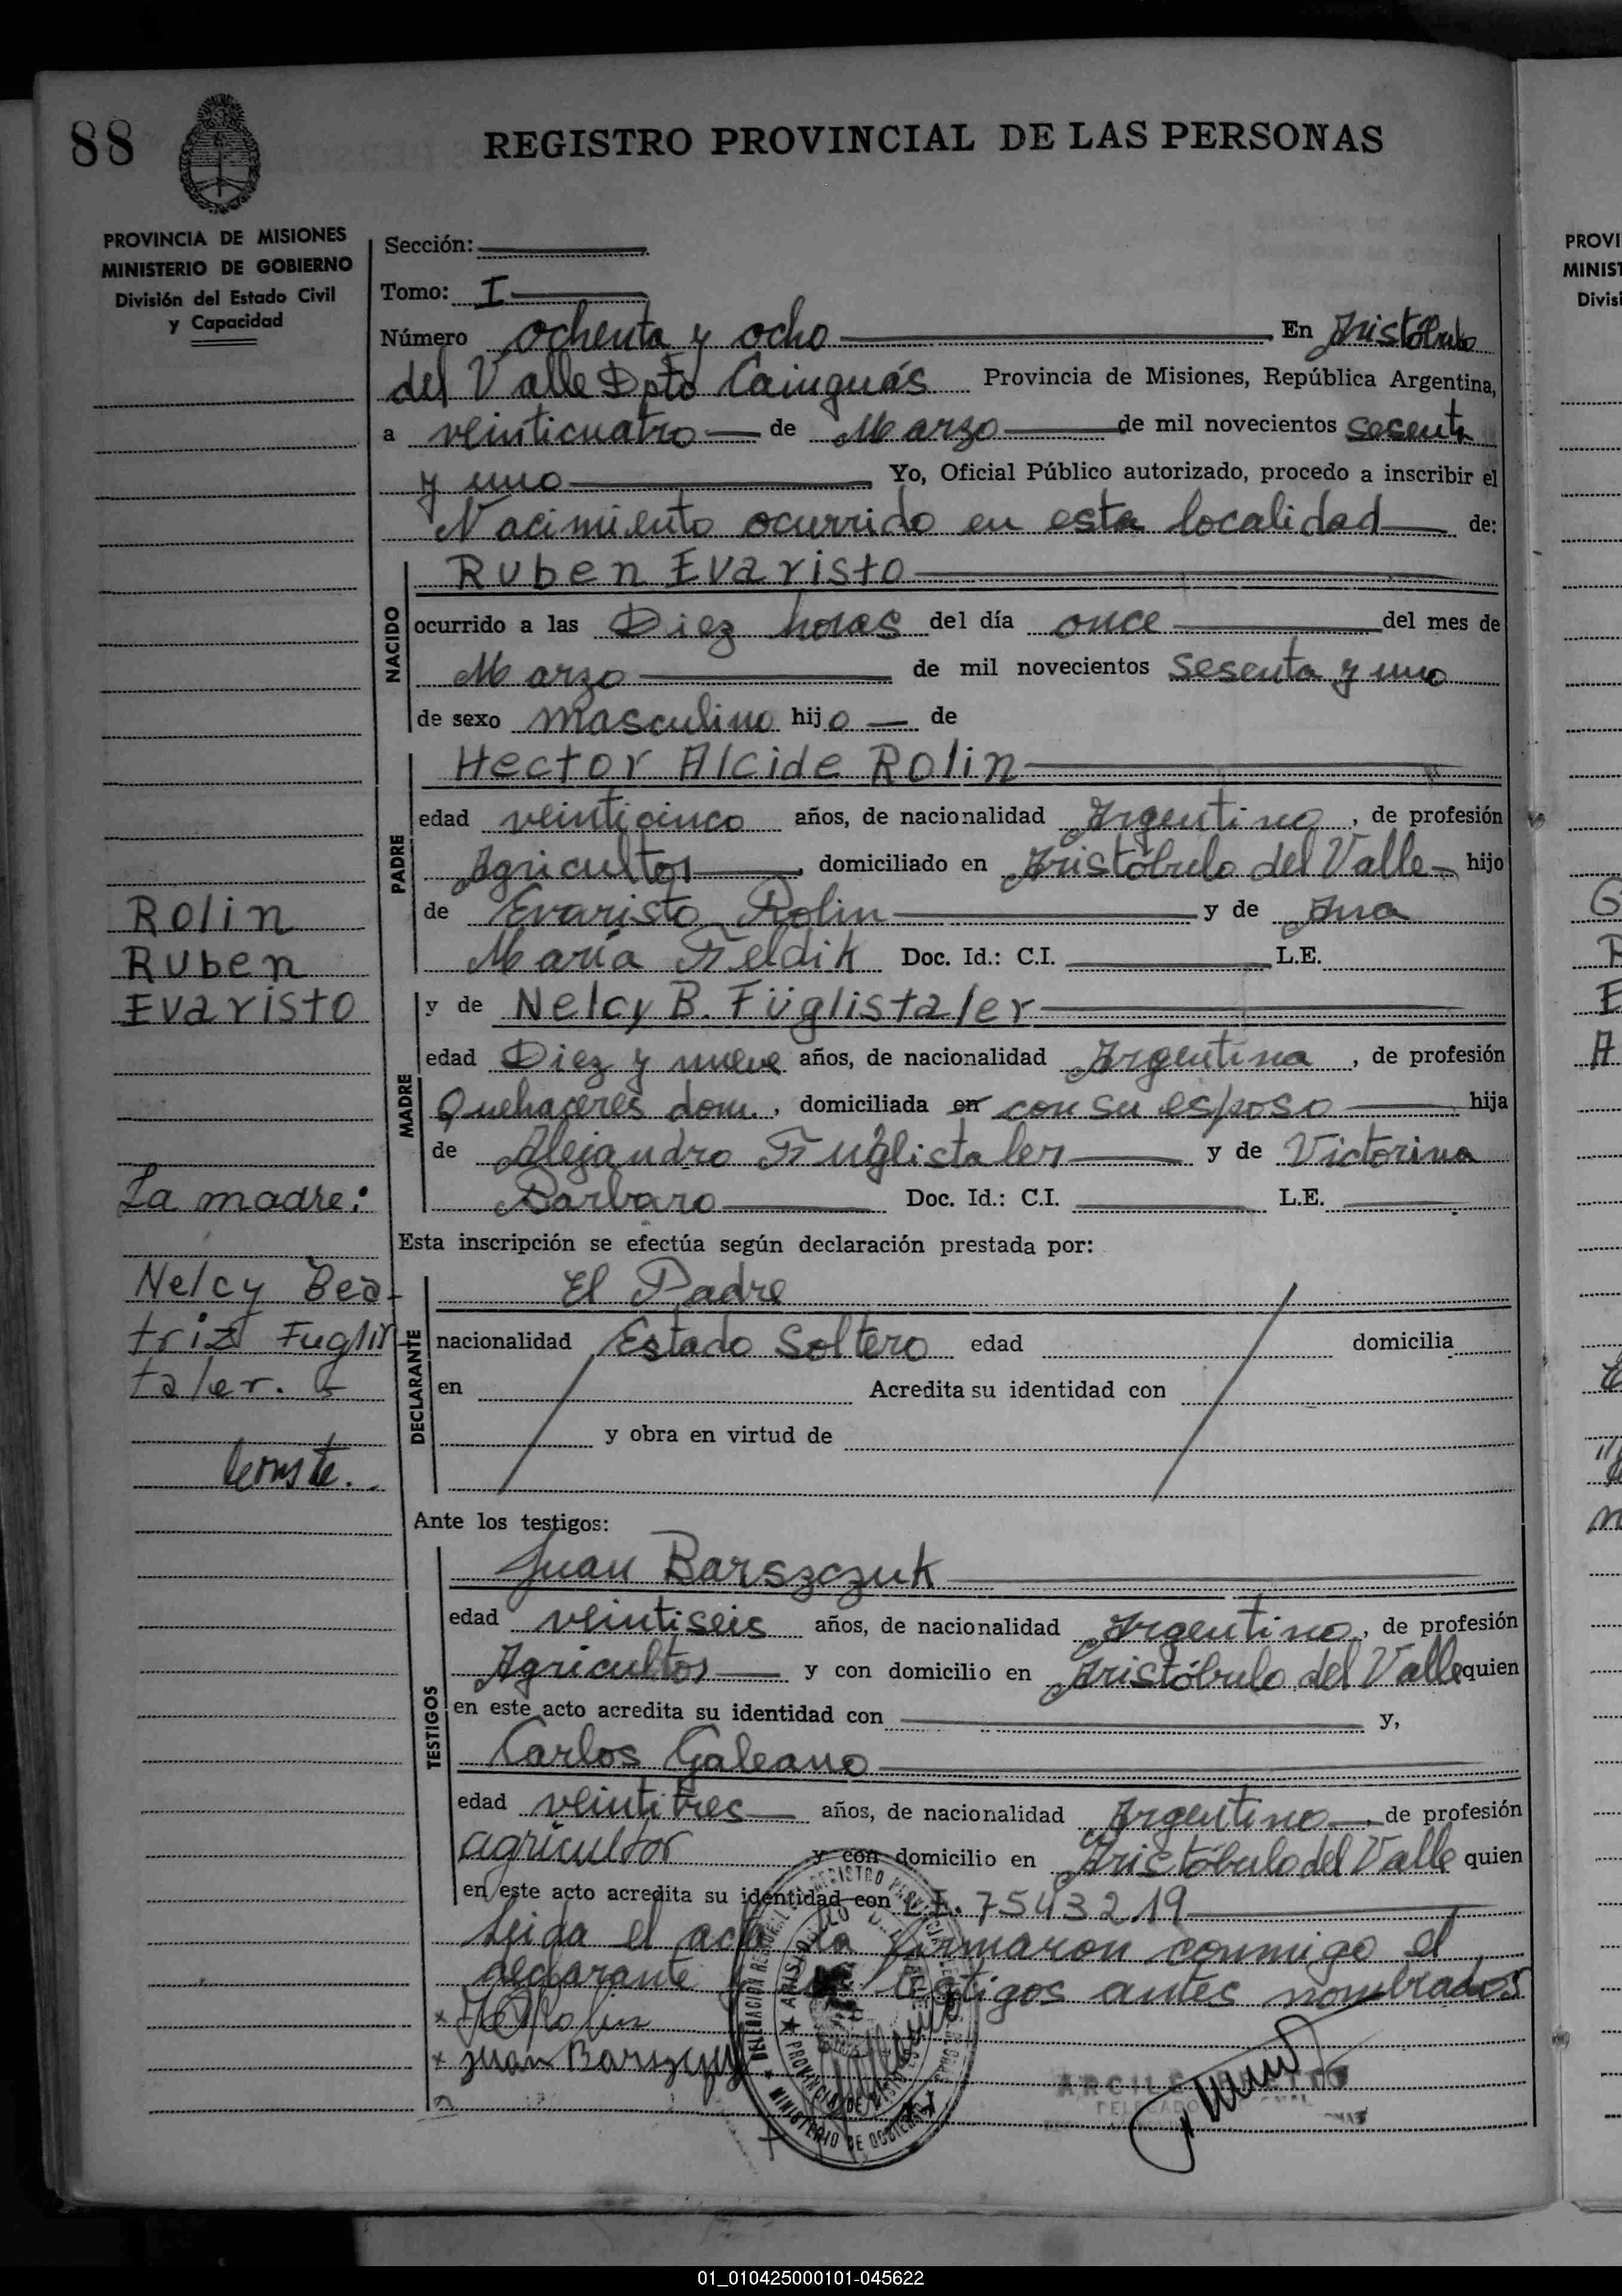 88
REGISTRO PROVINCIAL DE LAS PERSONAS
PROVINCIA DE MISIONES
MINISTERIO DE GOBIERNO
División del Estado Civil
y Capacidad
Sección:
Tomo: I
Número ochenta y ocho En Aristóbulo
del Valle Dpto Cainguás Provincia de Misiones, República Argentina,
a veinticuatro de Marzo de mil novecientos sesenta
y uno Yo, Oficial Público autorizado, procedo a inscribir el
Nacimiento ocurrido en esta localidad de:
NACIDO
Ruben Evaristo
ocurrido a las Diez horas del día once del mes de
Marzo de mil novecientos sesenta y uno
de sexo masculino hijo de
PADRE
Hector Alcide Rolin
edad veinticinco años, de nacionalidad Argentino, de profesión
Agricultor, domiciliado en Aristóbulo del Valle hijo
de Evaristo Rolin y de Ana
María Feldik Doc. Id.: C.I. L.E.
Rolin
Ruben
Evaristo
MADRE
y de Nelcy B. Füglistaler
edad Diez y nueve años, de nacionalidad Argentina, de profesión
Quehaceres dom., domiciliada en con su esposo hija
de Alejandro Fuglistaler y de Victorina
Barbaro Doc. Id.: C.I. L.E.
La madre:
Nelcy Bea-
triz Fuglis-
taler.
Conste.
Esta inscripción se efectúa según declaración prestada por:
DECLARANTE
El Padre
nacionalidad Estado Soltero edad domicilia
en Acredita su identidad con
y obra en virtud de
Ante los testigos:
TESTIGOS
Juan Barszczuk
edad veintiseis años, de nacionalidad Argentino, de profesión
Agricultor y con domicilio en Aristóbulo del Valle quien
en este acto acredita su identidad con y,
Carlos Galeano
edad veintitres años, de nacionalidad Argentino, de profesión
agricultor y con domicilio en Aristóbulo del Valle quien
en este acto acredita su identidad con L.E. 7543219
Leida el acta la firmaron conmigo el
declarante y los testigos antes nombrados
x H A Rolin
x Juan Barszczuk
MINISTERIO DE GOBIERNO
PROVI
MINIST
Divisi
01_010425000101-045622